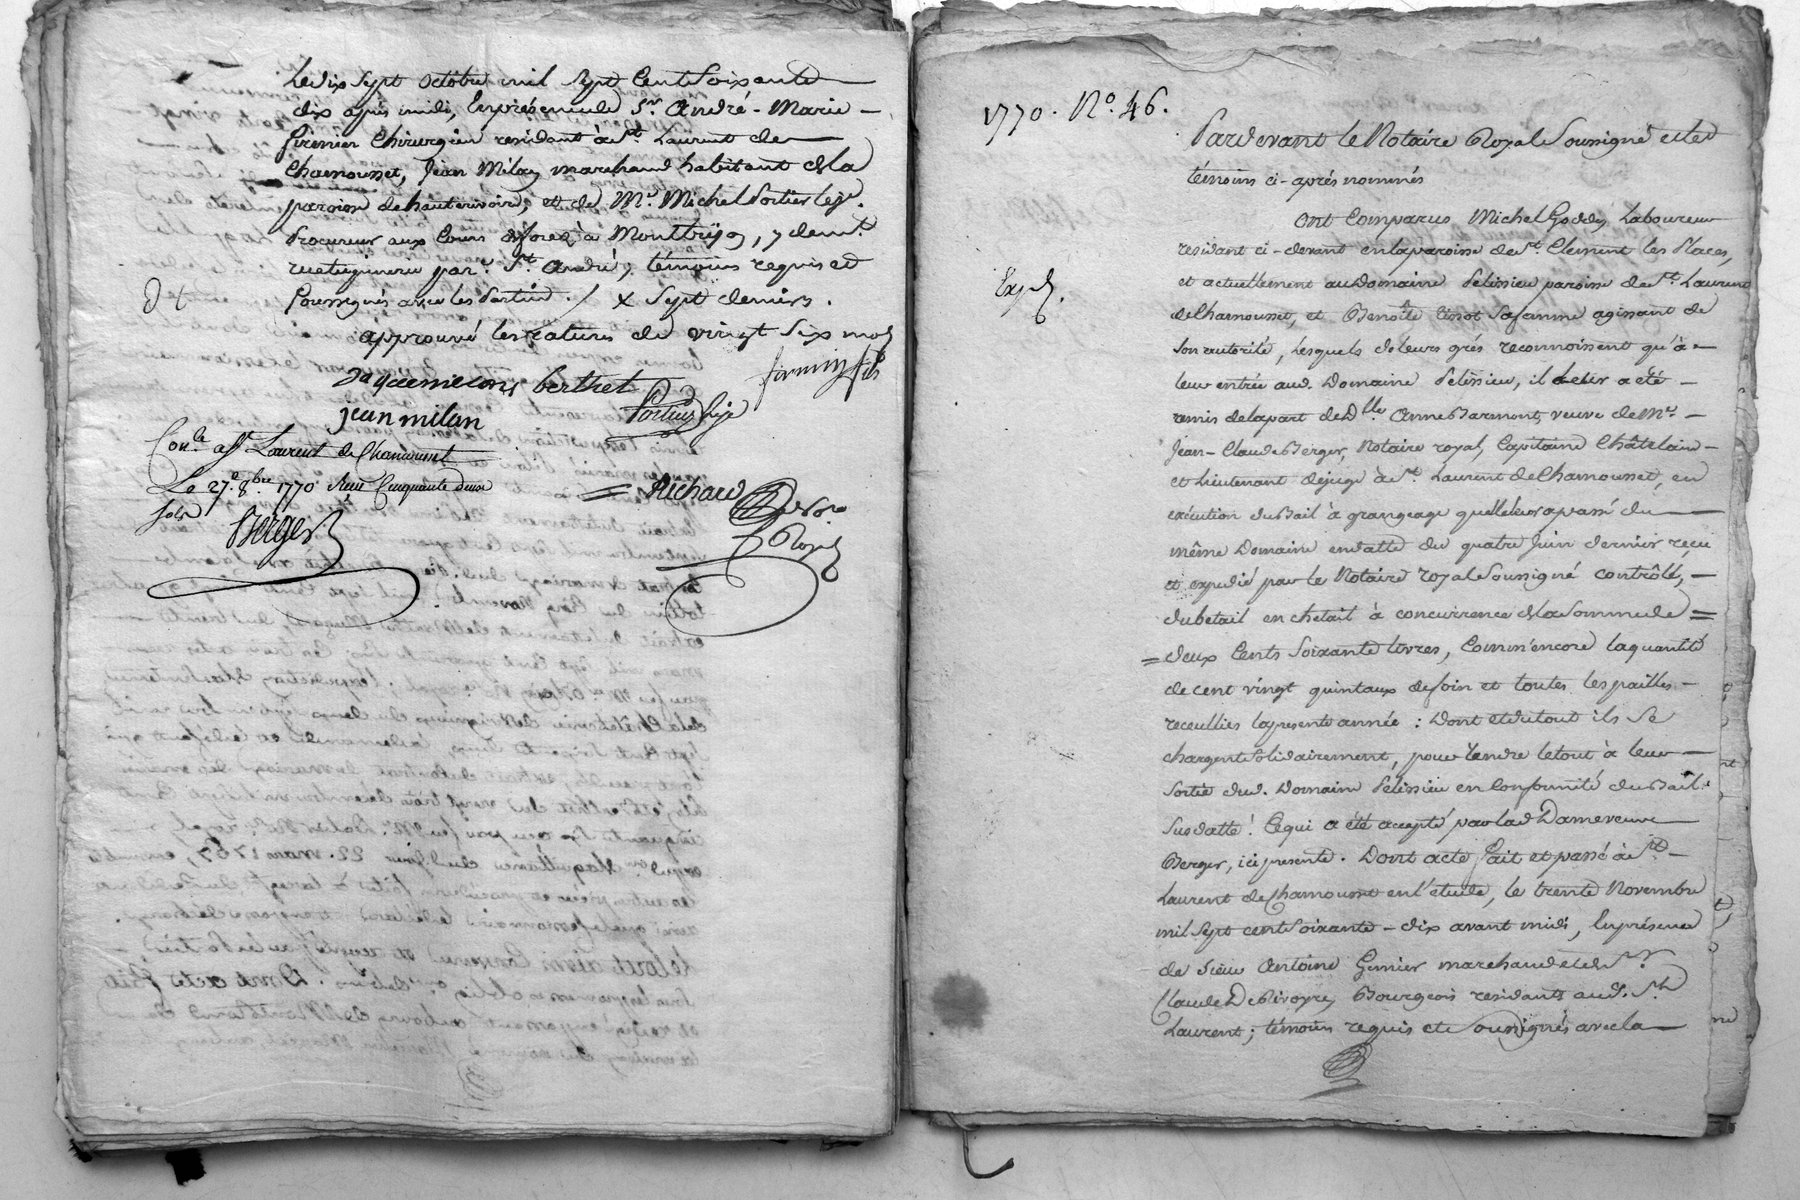 Le dix sept octobre mil sept cent soixante
dix après midi, en présence de Sr. André-Marie
firmin Chirurgien residant à St. Laurent de
Chamousset, Jean Milan marchand habitant de la
paroisse de hauterivoire, et de Me. Michel Portier leje.
Procureur aux Cours de forez à Montbrizon, y demt.
par. St. André, témoins requis et
soussignés avec les Parties . / x sept deniers .
approuvé les ratures de vingt six mots
Jaquemeton berthet firmin fils
jean milan Portier leje
Con.le a St Laurent de Chamousset
Le 27e. 8bre 1770 Reçu Cinquante deux
sols Richard
Berger Royal
1770. No. 46.
Pardevant le Notaire Royal Soussigné et les
témoins ci-après nommés
ont Comparus Michel Goddy, Laboureur
residant ci-devant en la paroisse de St. Clement les Places,
et actuellement au Domaine Pelissieu paroisse de St. Laurent
de Chamousset, et Benoîte Tisot sa femme agissant de
son autorité, Lesquels de leurs grés reconnoissent qu'à
leur entrée aud. Domaine Pelissieu, il leur a été
remis de la part de Dlle Anne Barmont, veuve de Me.
Jean-Claude Berger, Notaire royal, Capitaine Châtelain
et Lieutenant de juge à St. Laurent de Chamousset, en
Exp.
exécution du Bail à grangeage qu'elle leur a passé du
même Domaine en datte du quatre Juin dernier reçu
et expedié par le Notaire royal Soussigné contrôlé,
du betail en chetail à concurrence de la Somme de =
= deux Cents Soixante livres, Comm'encore la quantité
de cent vingt quintaux de foin et toutes les pailles
recuellies la presente année : Dont et du tout ils se
chargent Solidairement, pour rendre le tout à leur
Sortie dud. Domaine Pelissieu en Conformité du Bail
Susdatté ! Ce qui a été accepté par lad. Dame veuve
Berger, ici presente. Dont acte fait et passé à St.
Laurent de Chamousset en l'étude, le trente Novembre
mil sept cent Soixante-dix avant midi, En présence
de Sieur Antoine Grenier marchand et de Sr.
Claude De Rivoyre, Bourgeois residants aud. St.
Laurent ; témoins requis et Soussignés avec la